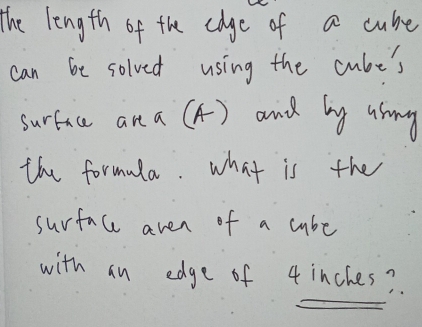 the length of the edge of a cube
can be solved using the cube's
surface area (A) and by using
the formula. what is the
surface area of a cube
with an edge of 4 inches?